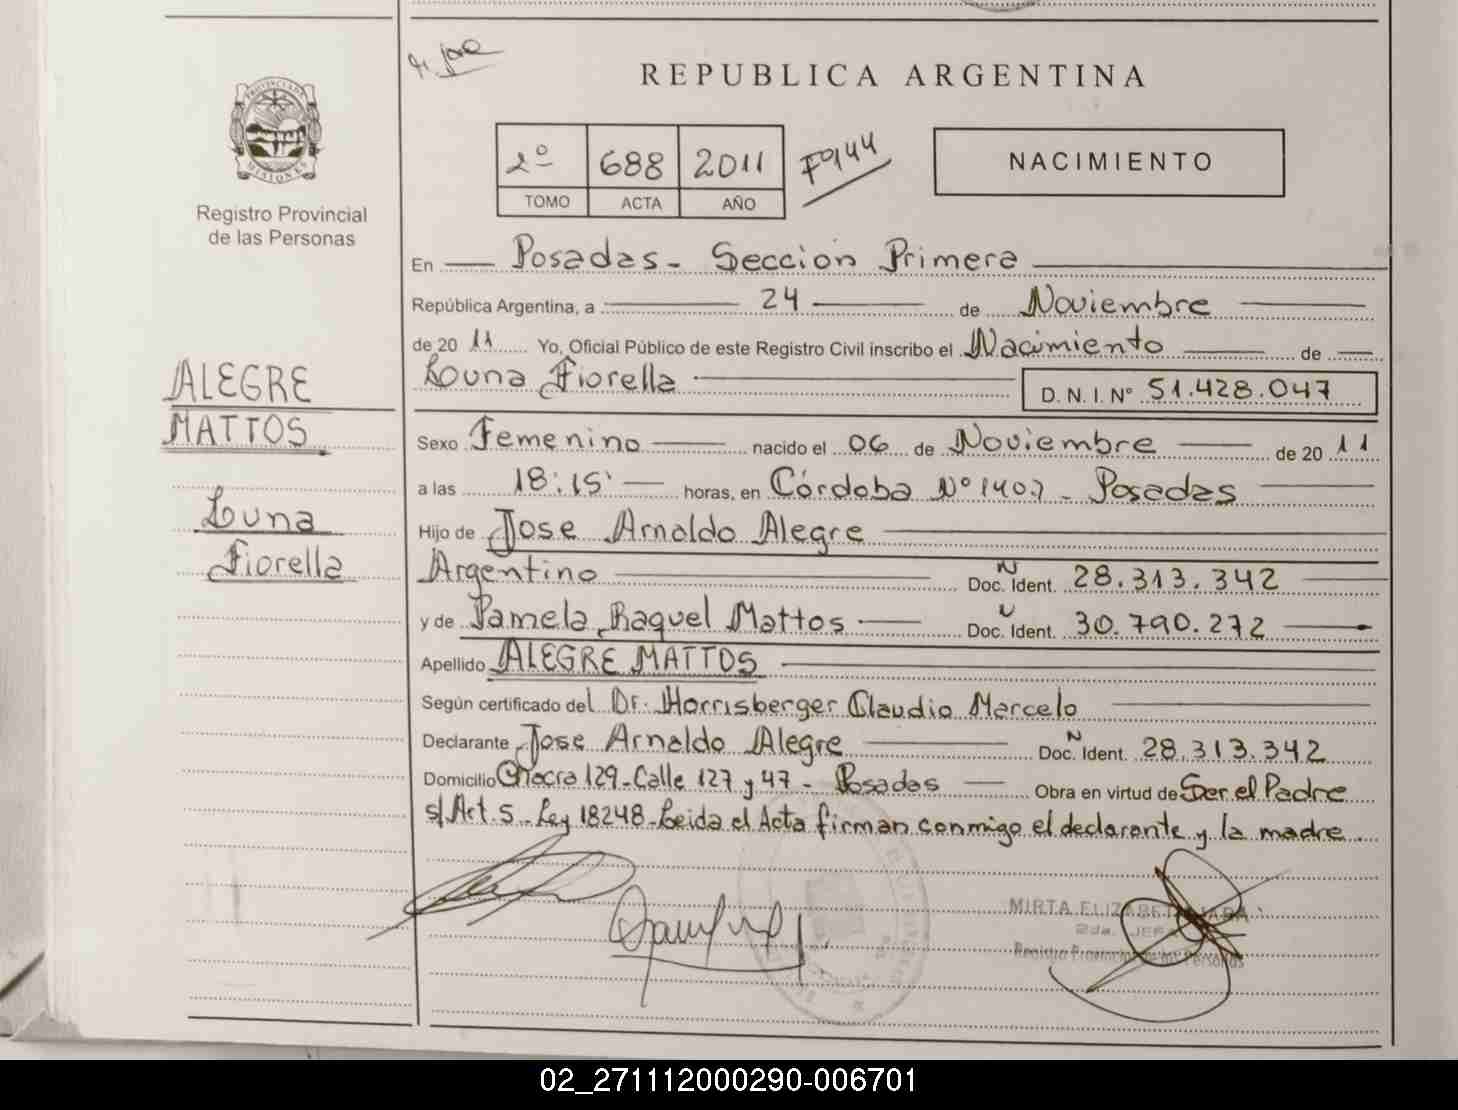 REPUBLICA ARGENTINA
PROVINCIA DE MISIONES
Registro Provincial
de las Personas
2º 688 2011 Fº 144
TOMO ACTA AÑO
NACIMIENTO
ALEGRE
MATTOS
Luna
Fiorella
En Posadas - Sección Primera
República Argentina, a 24 de Noviembre
de 20 11 Yo, Oficial Público de este Registro Civil inscribo el Nacimiento de
Luna Fiorella D. N. I. Nº 51.428.047
Sexo Femenino nacido el 06 de Noviembre de 20 11
a las 18:15' horas, en Córdoba Nº 1407 - Posadas
Hijo de Jose Arnaldo Alegre
Argentino Doc. N Ident. 28.313.342
y de Pamela Raquel Mattos Doc. N Ident. 30.790.272
Apellido ALEGRE MATTOS
Según certificado del Dr. Horrisberger Claudio Marcelo
Declarante Jose Arnaldo Alegre Doc. N Ident. 28.313.342
Domicilio Chacra 129 - Calle 127 y 47 - Posadas Obra en virtud de Ser el Padre
s/ Art. 5 - Ley 18248 - Leida el Acta firman conmigo el declarante y la madre.
MIRTA ELIZABETH JARA
2da. JEFA
Registro Provincial de las Personas
02_271112000290-006701